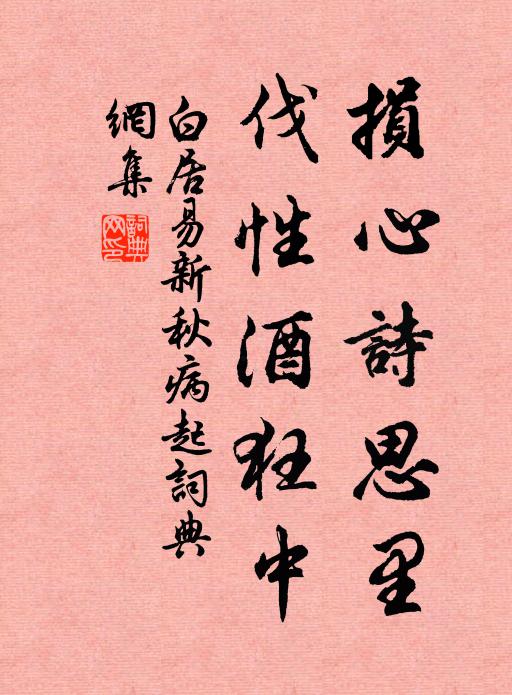 損心詩思里
伐性酒狂中
白居易新秋病起詞典
網集
詞典
网印